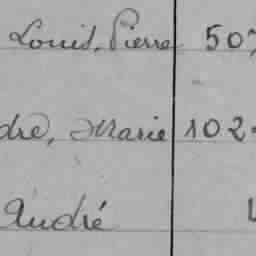 Louis, Pierre 507
dre, Marie 102
André